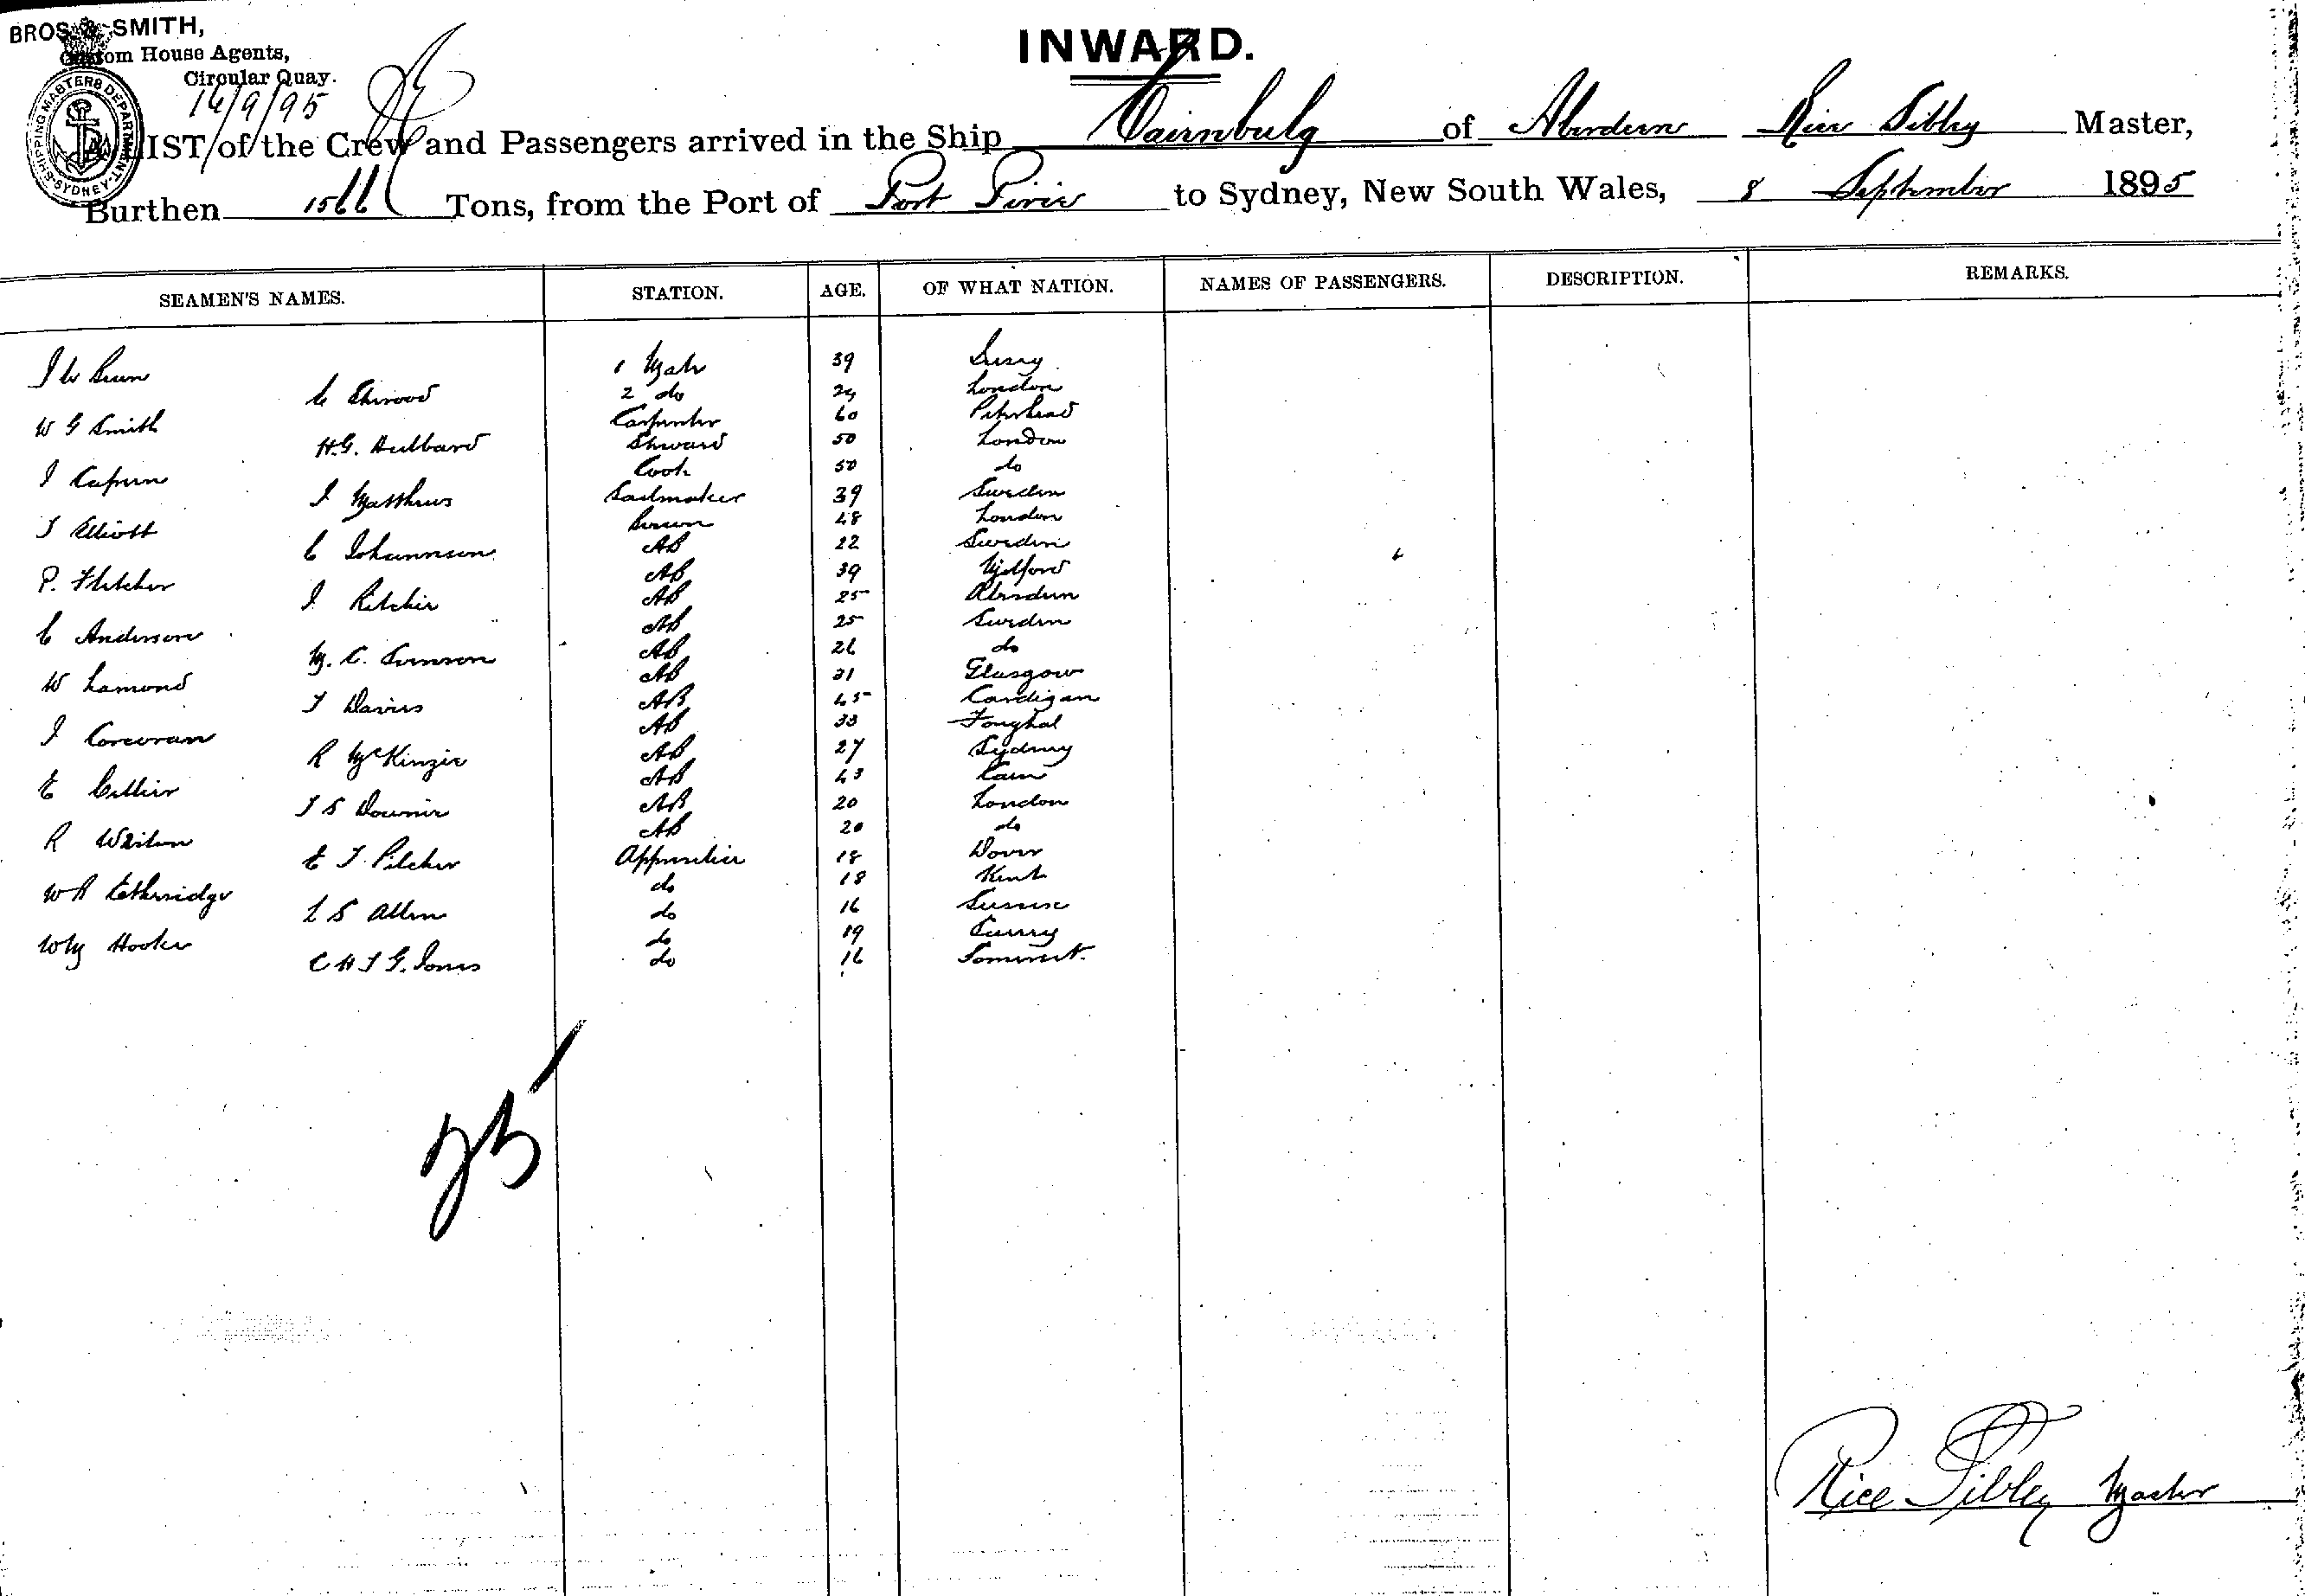 BROS. & SMITH,
Custom House Agents,
Circular Quay.
14/9/95
INWARD.
SHIPPING MASTERS DEPARTMENT SYDNEY
LIST of the Crew and Passengers arrived in the Ship Cairnbulg of Aberdeen Rice Sibley Master,
Burthen 1566 Tons, from the Port of Port Pirie to Sydney, New South Wales, 8 September 1895
SEAMEN'S NAMES. STATION. AGE. OF WHAT NATION. NAMES OF PASSENGERS. DESCRIPTION. REMARKS.
J W 1 Mate 39 Surrey
C Sherwood 2 do 29 London
W G Smith Carpenter 60 Peterhead
H.G. Hulbard Steward 50 London
J Capern Cook 50 do
J Matthews Sailmaker 39 Sweden
J Elliott 48 London
C Johannson AB 22 Sweden
P. Fletcher AB 39 Milford
J Ritchie AB 25 Aberdeen
C Anderson AB 25 Sweden
M. C. AB 26 do
W Lamond AB 31 Glasgow
J Davies AB 45 Cardigan
J Corcoran AB 33 Youghal
R McKinzie AB 27 Sydney
E Collier AB 43
J S Downie AB 20 London
R AB 20 do
E J Pilcher Apprentice 18 Dover
W A Etheridge do 18 Kent
L S Allen do 16 Sussex
W M Hooker do 19 Surrey
C H J G. Jones do 16 Somerset
25
Rice Sibley Master